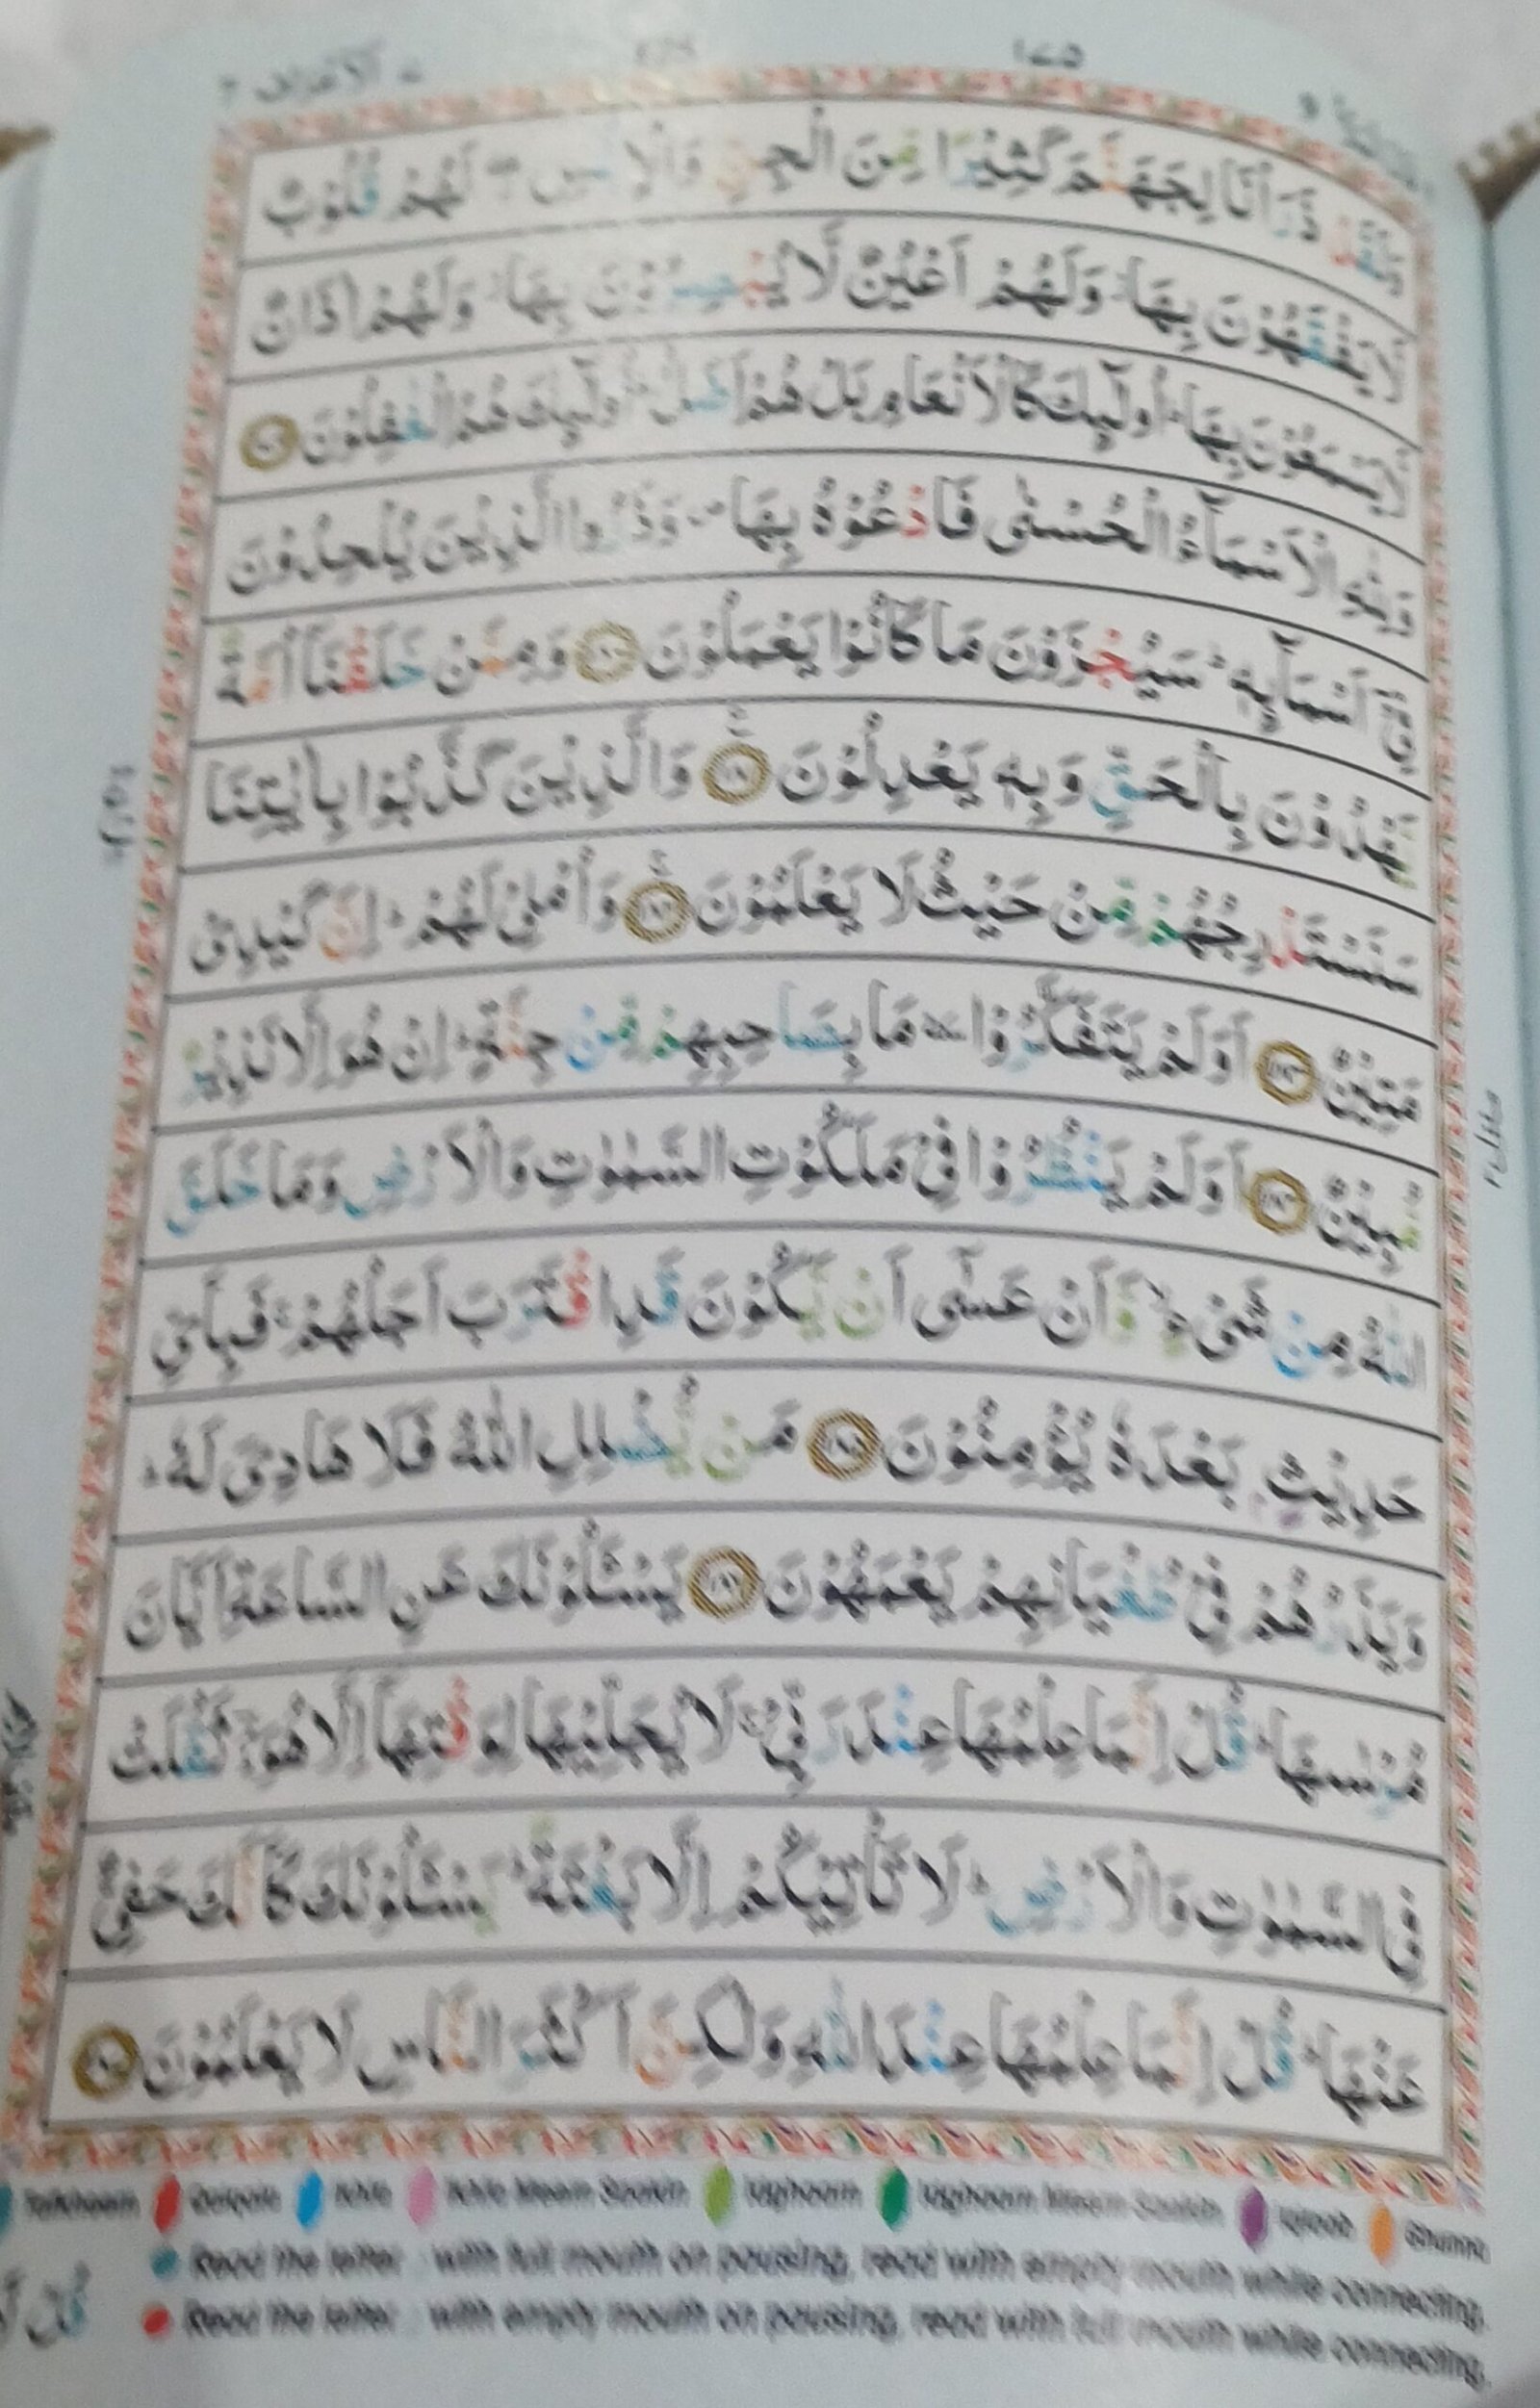 ٧ الاعراف ٧
١٧٥
وَلَقَدْ ذَرَاْنَا لِجَهَنَّمَ كَثِيْرًا مِّنَ الْجِنِّ وَالْاِنْسِ ۖ لَهُمْ قُلُوْبٌ
لَّا يَفْقَهُوْنَ بِهَا ۖ وَلَهُمْ اَعْيُنٌ لَّا يُبْصِرُوْنَ بِهَا ۖ وَلَهُمْ اٰذَانٌ
لَّا يَسْمَعُوْنَ بِهَا ؕ اُولٰٓئِكَ كَالْاَنْعَامِ بَلْ هُمْ اَضَلُّ ؕ اُولٰٓئِكَ هُمُ الْغٰفِلُوْنَ ﴿۱۷۹﴾
وَلِلّٰهِ الْاَسْمَآءُ الْحُسْنٰى فَادْعُوْهُ بِهَا ۪ وَذَرُوا الَّذِيْنَ يُلْحِدُوْنَ
فِيْٓ اَسْمَآئِهٖ ؕ سَيُجْزَوْنَ مَا كَانُوْا يَعْمَلُوْنَ ﴿۱۸۰﴾ وَمِمَّنْ خَلَقْنَآ اُمَّةٌ
يَّهْدُوْنَ بِالْحَقِّ وَبِهٖ يَعْدِلُوْنَ ﴿۱۸۱﴾ وَالَّذِيْنَ كَذَّبُوْا بِاٰيٰتِنَا
سَنَسْتَدْرِجُهُمْ مِّنْ حَيْثُ لَا يَعْلَمُوْنَ ﴿۱۸۲﴾ وَاُمْلِيْ لَهُمْ ؕ اِنَّ كَيْدِيْ
مَتِيْنٌ ﴿۱۸۳﴾ اَوَلَمْ يَتَفَكَّرُوْا ؔ مَا بِصَاحِبِهِمْ مِّنْ جِنَّةٍ ؕ اِنْ هُوَ اِلَّا نَذِيْرٌ
مُّبِيْنٌ ﴿۱۸۴﴾ اَوَلَمْ يَنْظُرُوْا فِيْ مَلَكُوْتِ السَّمٰوٰتِ وَالْاَرْضِ وَمَا خَلَقَ
اللّٰهُ مِنْ شَيْءٍ ۙ وَّاَنْ عَسٰٓى اَنْ يَّكُوْنَ قَدِ اقْتَرَبَ اَجَلُهُمْ ۚ فَبِاَيِّ
حَدِيْثٍۭ بَعْدَهٗ يُؤْمِنُوْنَ ﴿۱۸۵﴾ مَنْ يُّضْلِلِ اللّٰهُ فَلَا هَادِيَ لَهٗ ؕ
وَيَذَرُهُمْ فِيْ طُغْيَانِهِمْ يَعْمَهُوْنَ ﴿۱۸۶﴾ يَسْـَٔلُوْنَكَ عَنِ السَّاعَةِ اَيَّانَ
مُرْسٰىهَا ؕ قُلْ اِنَّمَا عِلْمُهَا عِنْدَ رَبِّيْ ۚ لَا يُجَلِّيْهَا لِوَقْتِهَآ اِلَّا هُوَ ؔ ثَقُلَتْ
فِى السَّمٰوٰتِ وَالْاَرْضِ ؕ لَا تَاْتِيْكُمْ اِلَّا بَغْتَةً ؕ يَسْـَٔلُوْنَكَ كَاَنَّكَ حَفِيٌّ
عَنْهَا ؕ قُلْ اِنَّمَا عِلْمُهَا عِنْدَ اللّٰهِ وَلٰكِنَّ اَكْثَرَ النَّاسِ لَا يَعْلَمُوْنَ ﴿۱۸۷﴾
Tafkheem Qalqala Ikhfa Ikhfa Meem Saakin Idghaam Idghaam Meem Saakin Iqlaab Ghunna
Read the letter with full mouth on pausing, read with empty mouth while connecting.
Read the letter with empty mouth on pausing, read with full mouth while connecting.